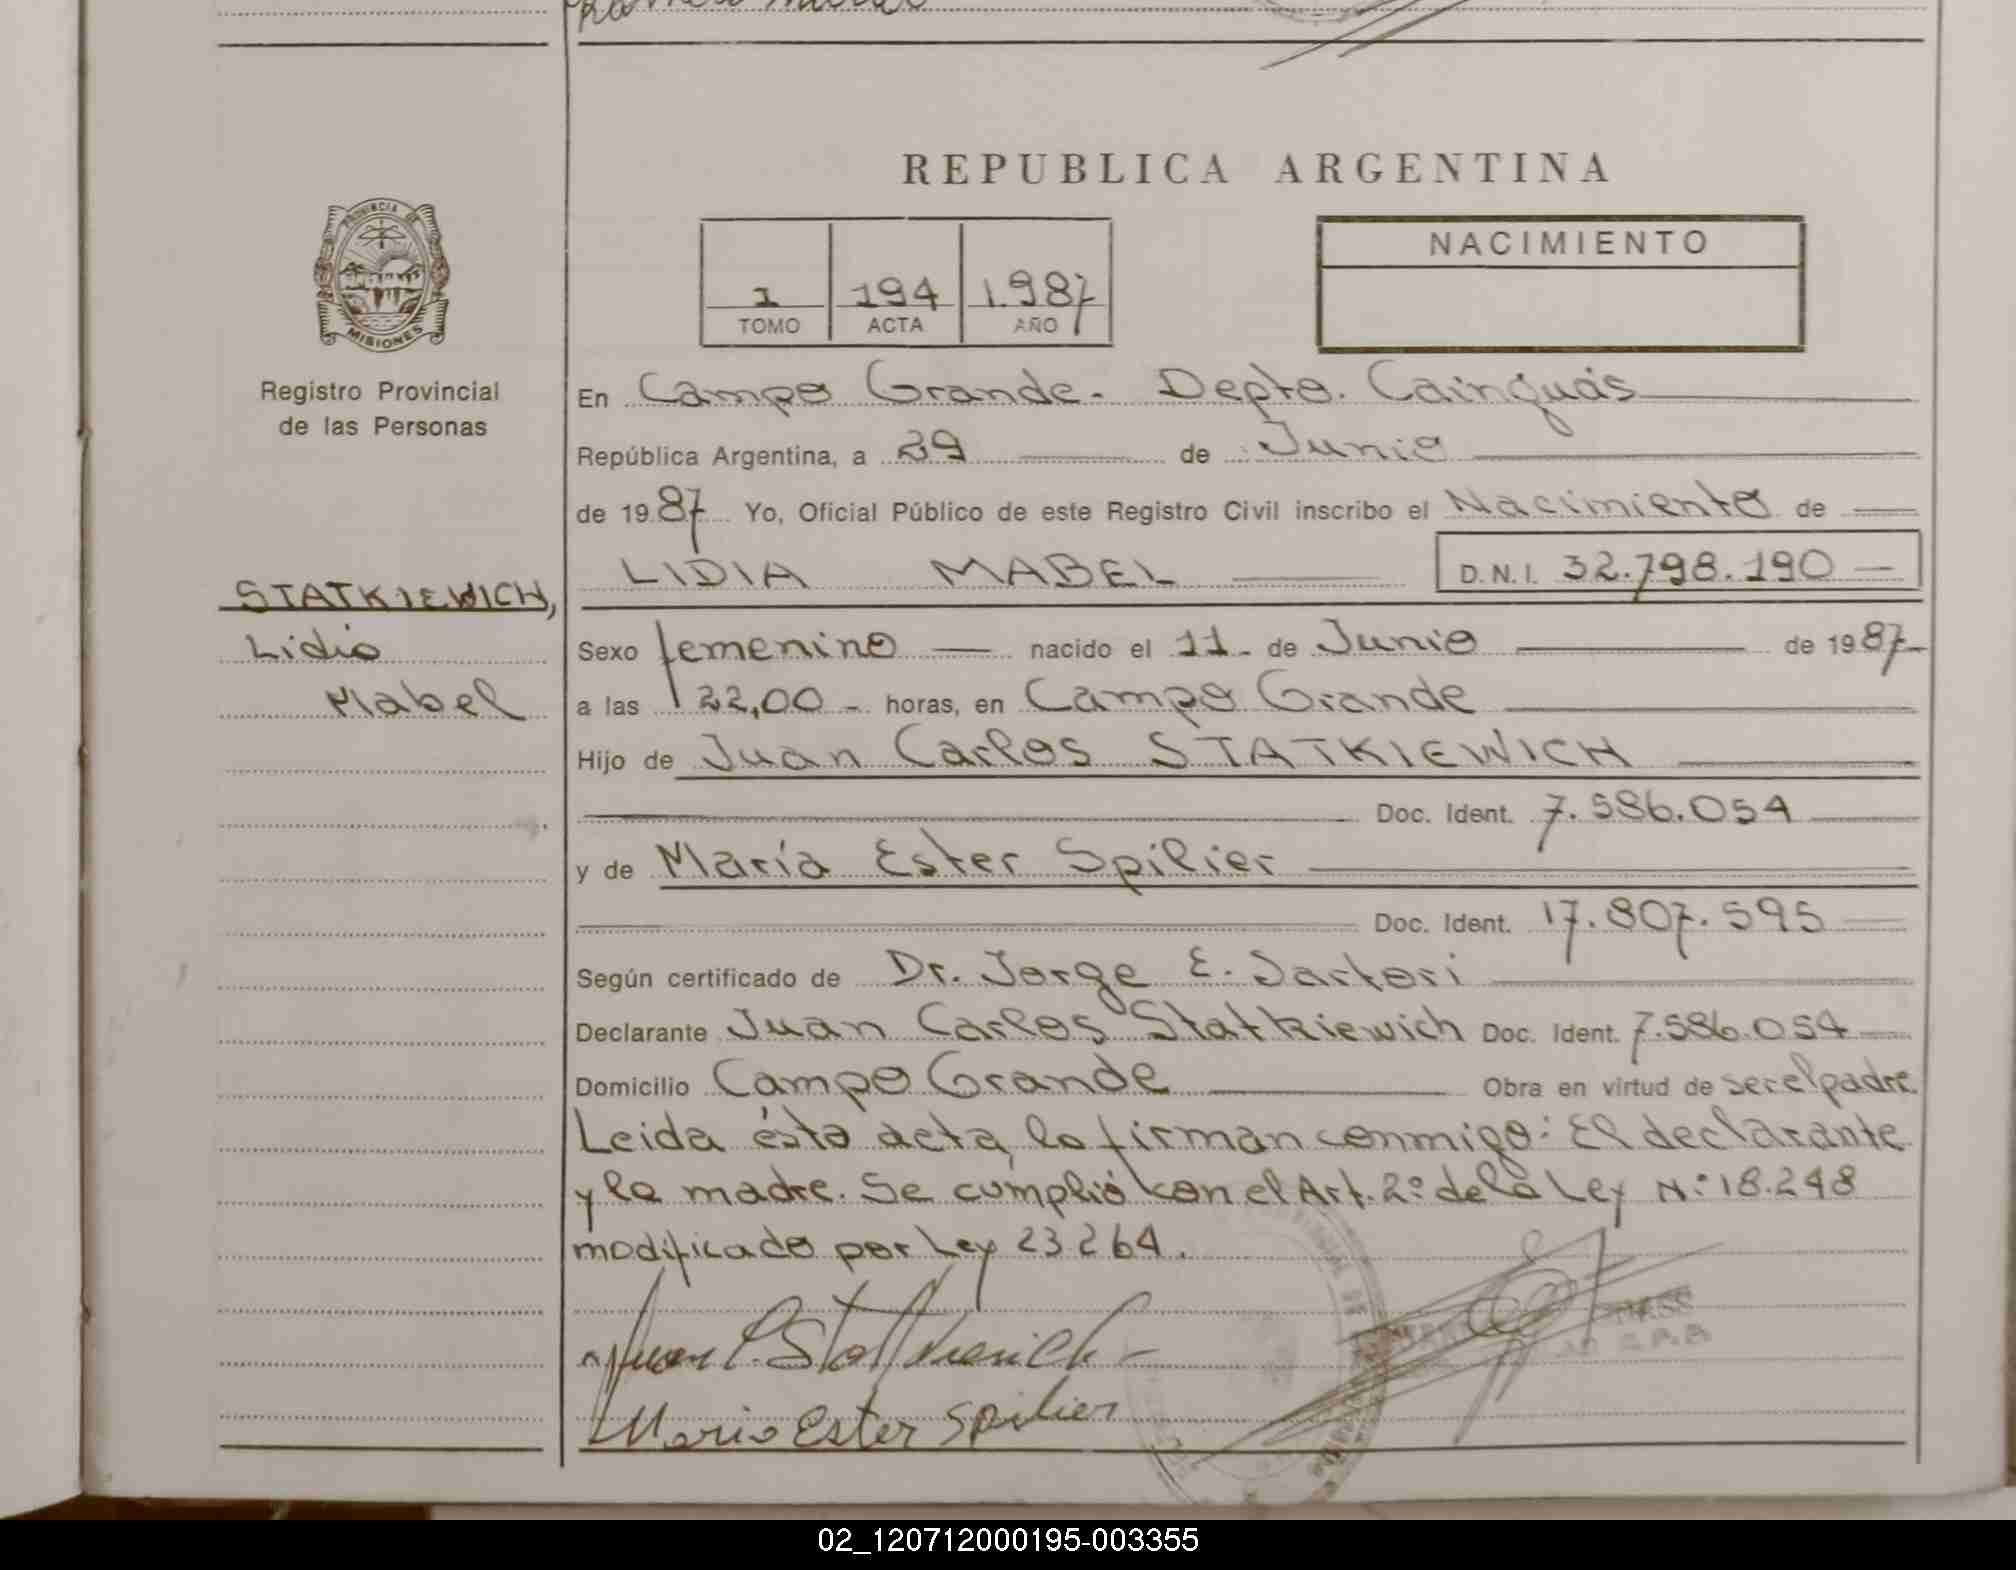 REPUBLICA ARGENTINA
PROVINCIA DE
MISIONES
Registro Provincial
de las Personas
1 194 1.987
TOMO ACTA AÑO
NACIMIENTO
En Campo Grande. Depto. Cainguás
República Argentina, a 29 de Junio
de 1987 Yo, Oficial Público de este Registro Civil inscribo el Nacimiento de
LIDIA MABEL D.N.I. 32.798.190
STATKIEWICH,
Lidia
Mabel
Sexo femenino nacido el 11 de Junio de 1987
a las 22,00 horas, en Campo Grande
Hijo de Juan Carlos STATKIEWICH
Doc. Ident. 7.586.054
y de María Ester Spilier
Doc. Ident. 17.807.595
Según certificado de Dr. Jorge E. Sartori
Declarante Juan Carlos Statkiewich Doc. Ident. 7.586.054
Domicilio Campo Grande Obra en virtud de ser el padre.
Leida ésta acta, la firman conmigo: El declarante
y la madre. Se cumplió con el Art. 2º de la Ley N:º 18.248
modificado por Ley 23264.
Juan C. Statkiewich
Maria Ester Spilier
02_120712000195-003355